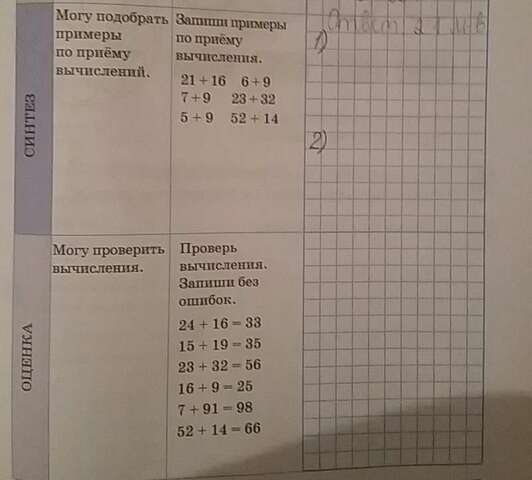 СИНТЕЗ
Могу подобрать
примеры
по приёму
вычислений.
Запиши примеры
по приёму
вычисления.
21 + 16 6 + 9
7 + 9 23 + 32
5 + 9 52 + 14
Ответ 21
1)
2)
ОЦЕНКА
Могу проверить
вычисления.
Проверь
вычисления.
Запиши без
ошибок.
24 + 16 = 33
15 + 19 = 35
23 + 32 = 56
16 + 9 = 25
7 + 91 = 98
52 + 14 = 66